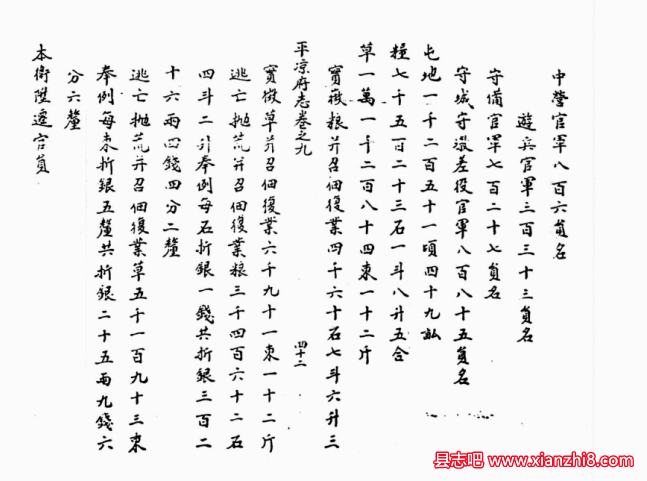 中營官軍八百六員名
遊兵官軍三百三十三員名
守備官軍七百二十七員名
守城守墩差役官軍八百八十五員名
屯地一千二百五十一頃四十九畝
糧七千五百二十三石一斗八升五合
草一萬一千二百八十四束一十二斤
實徵粮并召佃復業四千六十石七斗六升三
平凉府志卷之九
四十二
實徵草并召佃復業六千九十一束一十二斤
逃亡抛荒并召佃復業粮三千四百六十二石
四斗二升奉例每石折銀一錢共折銀三百二
十六兩四錢四分二釐
逃亡抛荒并召佃復業草五千一百九十三束
奉例每束折銀五釐共折銀二十五兩九錢六
分六釐
本衛陞遷官員
县志吧 www.xianzhi8.com